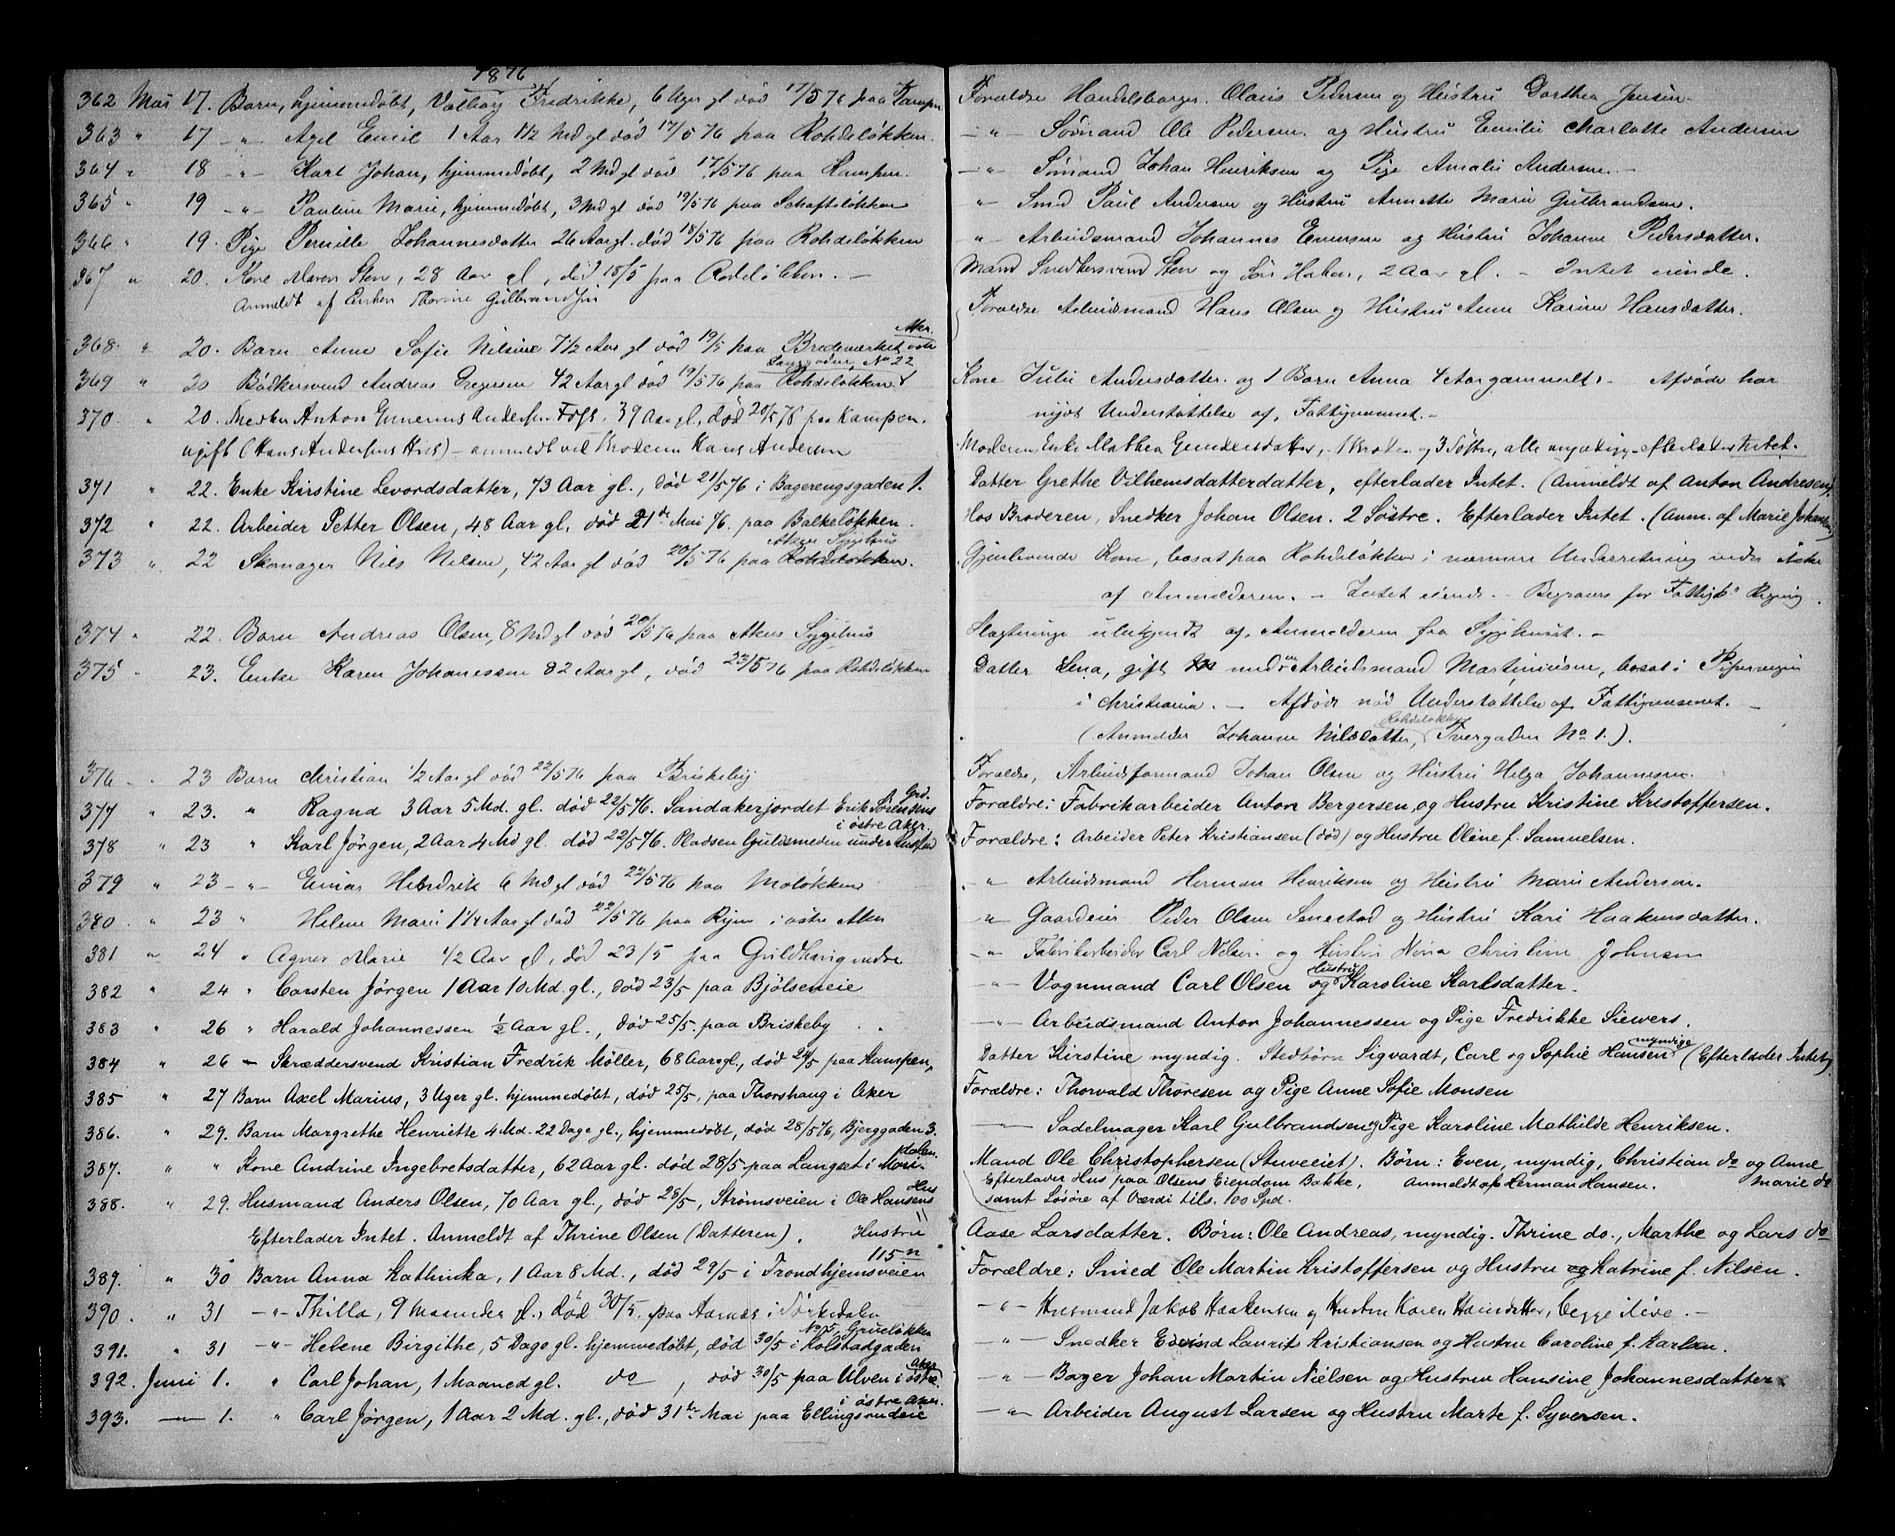 1876
362 Mai 17. Barn, hjemmedøbt, Valborg Fredrikke, 6 Uger gl død 17/5 76 paa Kampen
Forældre Handelsborger Olaus Pedersen og Hustru Dorthea Jensen
363 " 17 -"- Axel Emil 1 Aar 1 1/2 Md gl død 17/5 76 paa Rohdeløkken.
-"- Sømand Ole Pedersen og Hustru Emilie Charlotte Andersen
364 " 18 "- Karl Johan, hjemmedøbt, 2 Md gl død 17/5 76 paa Kampen.
-"- Sømand Johan Henriksen og Pige Amalie Andersen. -
365 " 19 -"- Pauline Marie, hjemmedøbt, 3 Md gl død 19/5 76 paa Schafteløkken
"- Smed Paul Andersen og Hustru Annette Marie Gulbrandsen.
366 " 19. Pige Pernille Johannesdatter 26 Aar gl. død 18/5 76 paa Rohdeløkken
"- Arbeidsmand Johannes Evensen og Hustru Johanne Pedersdatter.
367 " 20. Kone Maren Sten, 28 Aar gl, død 18/5 paa Rodeløkken. -
Mand Snedkersvend Sten og Søn Hakon, 2 Aar gl. - Intet eiende.
Anmeldt af Enken Thorine Gulbrandsen
Forældre Arbeidsmand Hans Olsen og Hustru Anne Karine Hansdatter.
368. " 20. Barn Anne Sofie Nilsine 7 1/2 Aar gl død 19/5 paa Bredeverket Aker.
369 " 20 Bødkersvend Andreas Gregersen 42 Aar gl død 19/5 76 paa Rohdeløkken No 22
Kone Julie Andersdatter og 1 Barn Anna 4 Aar gammelt. - Afdøde har
nydt Understøttelse af Fattigvæsenet. -
370. " 20. Anton Gunerius Andersen Foss. 39 Aar gl., død 20/5 76 paa Kampen.
ugift (Hans Andersens Hus) - anmeldt ved Broderen Hans Andersen
Moderen, Enke Mathea Gundersdatter, 1 Broder og 3 Søstre, alle myndige - efterlader Intet.
371 " 22. Enke Kirstine Levordsdatter, 73 Aar gl., død 21/5 76 i Bagerengsgaden 1.
Datter Grethe Vilhemsdatterdatter, efterlader Intet. (Anmeldt af Anton Andresen)
372 " 22. Arbeider Petter Olsen, 48 Aar gl. død 21de Mai 76. paa Balkeløkken.
Hos Broderen, Snedker Johan Olsen. 2 Søstre. Efterlader Intet. (Anm. af Marie
373 " 22 Skomager Nils Nilsen, 42 Aar gl død 20/5 76 paa Rohdeløkken. Akers Sygehus
Gjenlevende Kone, bosat paa Rohdeløkken; nærmere Underretning vides ikke
af Anmelderen. - Intet eiende. - Begraves for Fattigv. Regning.
374 " 22. Barn Andreas Olsen, 8 Md gl død 20/5 76 paa Akers Sygehus
Slægtninge ubekjendt af Anmelderen fra Sygehuset. -
375 " 23. Enke Karen Johanessen 82 Aar gl, død 22/5 76 paa Rohdeløkken
Datter Lena, gift med Arbeidsmand Martiniusen, bosat i Pipervigen
i Christiania. - Afdøde nød Understøttelse af Fattigvæsenet. -
(Anmelder Johanne Nilsdatter, Rohdeløkken Tvergaden No 1.).
376 " 23 Barn Christian 1/2 Aar gl død 22/5 76 paa Briskeby
Forældre, Arbeidsformand Johan Olsen og Hustru Helga Johannesen.
377 " 23. " Ragna 3 Aar 5 Md. gl. død 22/5 76. Sandakerjordet Erik Sørensens Grd.
Forældre: Fabrikarbeider Anton Bergersen og Hustru Kristine Kristoffersen.
378 " 23 " Karl Jørgen, 2 Aar 4 Md gl. død 22/5 76. Pladsen Guldsmeden under i østre Aker.
Forældre: Arbeider Peter Kristiansen (død) og Hustru Oline f. Samuelsen.
379 " 23 - "- Einar Hendrik 6 Md gl død 22/5 76 paa Moløkken
-"- Arbeidsmand Herman Henriksen og Hustru Marie Andersen.
380. " 23 " Helene Marie 1 1/4 Aar gl død 22/5 76 paa Ryen i østre Aker
-"- Gaardeier Peder Olsen Senestad og Hustru Kari Haakensdatter.
381 " 24 " Agnes Marie 1/2 Aar gl, død 23/5 paa Guldhaug nedre
-"- Fabrikarbeider Carl Nilsen og Hustru Nina Christine Johnsen
382 " 24 " Carsten Jørgen 1 Aar 10 Md. gl., død 23/5 paa Bjølseneie
-"- Vognmand Carl Olsen og Hustru Karoline Karlsdatter.
383 " 26 " Harald Johannessen 1/2 Aar gl., død 25/5. paa Briskeby
-"- Arbeidsmand Anton Johannessen og Pige Fredrikke Siewers.
384 " 26 - Skræddersvend Kristian Fredrik Møller, 68 Aar gl., død 24/5 paa Kampen,
Datter Kirstine myndig. Stedbørn Sigvardt, Carl og Sophie Hansen myndige (Efterlader Intet)
385 " 27 Barn Axel Marius, 3 Uger gl. hjemmedøbt, død 25/5, paa Thorshaug i Aker
Forældre: Thorvald Thoresen og Pige Anne Sofie Monsen
386. " 29. Barn Margrethe Henriette 4 Md. 22 Dage gl., hjemmedøbt, død 28/5 76, Bjerggaden 3.
-"- Sadelmager Karl Gulbrandsen og Pige Karoline Mathilde Henriksen.
387. " " Kone Andrine Ingebretsdatter, 62 Aar gl. død 28/5 paa Langset i Mari-dalen.
Mand Ole Christophersen (Stuveeiet). Børn: Even, myndig, Christian do og Anne Marie do
Efterlader Hus paa Olsens Eiendom Bakke, Anmeldt af Herman Hansen.
samt Løsøre af Værdi tils. 100 Spd.
388. " 29. Husmand Anders Olsen, 70 Aar gl., død 28/5, Strømsveien i Ole Hansens Hus
Efterlader Intet. Anmeldt af Thrine Olsen (Datteren). Hustru
Aase Larsdatter. Børn: Ole Andreas, myndig. Thrine do., Marthe og Lars do
389. " 30 Barn Anna Kathinka, 1 Aar 8 Md., død 29/5 i Trondhjemsveien 115 n
Forældre: Smed Ole Martin Kristoffersen og Hustru Katrine f. Nilsen.
390. " 31 -"- Thilla, 9 Maaneder gl., død 30/5. paa Aarnæs i Sørkedalen
-"- Husmand Jakob Haakensen og Hustru Karen Hansdatter, begge ilive. -
391. " 31 -"- Helene Birgithe, 5 Dage gl. hjemmedøbt, død 30/5 i Kolstadgaden No 5, Grueløkken
-"- Snedker Eivind Laurits Kristiansen og Hustru Caroline f. Karlsen.
392. Juni 1. " Carl Johan, 1 Maaned gl. do, død 30/5 paa Ulven i østre Aker
-"- Bager Johan Martin Nielsen og Hustru Hansine Johannesdatter.
393. - 1. " Carl Jørgen, 1 Aar 2 Md. gl., død 31te Mai paa Ellingsrudeie i østre Aker.
-"- Arbeider August Larsen og Hustru Marte f. Syversen.